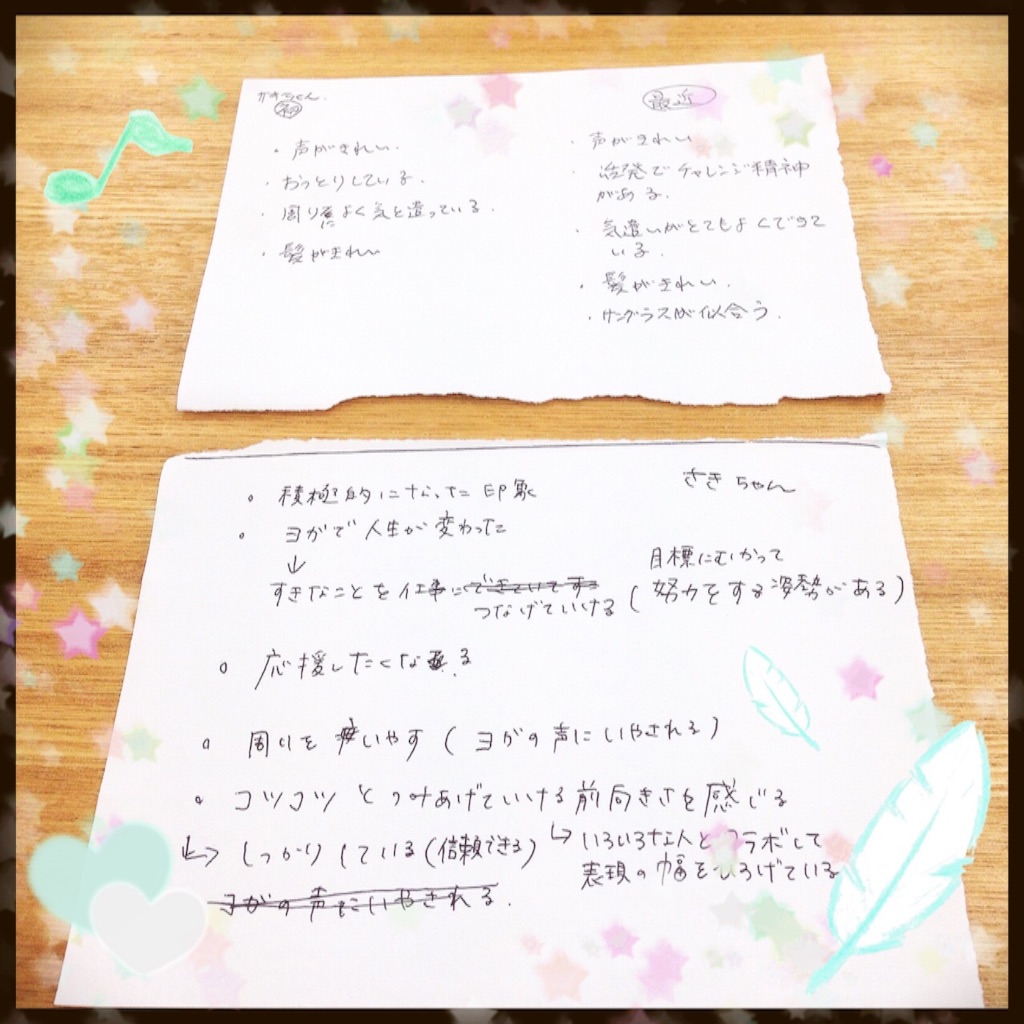 初
・声がきれい.
・おっとりしている.
・周りによく気を遣っている.
・髪がきれい
最近
・声がきれい
・活発でチャレンジ精神
がある.
・気遣いがとてもよくできて
いる.
・髪がきれい.
・サングラスが似合う.
さきちゃん
・積極的になった印象
・ヨガで人生が変わった
↓
すきなことを仕事に
つなげていける
目標にむかって
(努力をする姿勢がある)
・応援したくなる
・周りをいやす(ヨガの声にいやされる)
・コツコツとつみあげていける前向きさを感じる
↳しっかりしている(信頼できる)
↳いろいろな人とコラボして
表現の幅をひろげている
ヨガの声にいやされる.